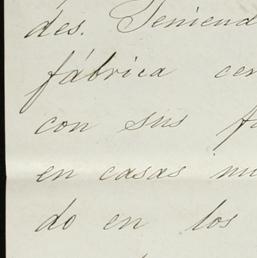 des. Teniend
fábrica cer
con sus fa
en casas mu
do en los